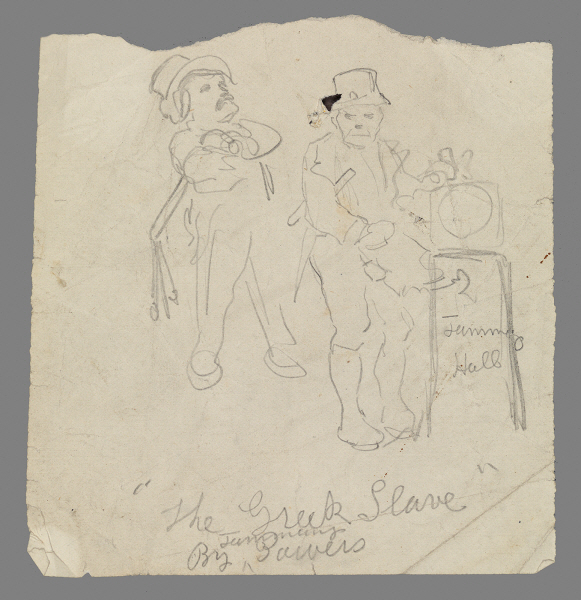 Tammy
Hall
"The Greek Slave"
Tammany
By Powers